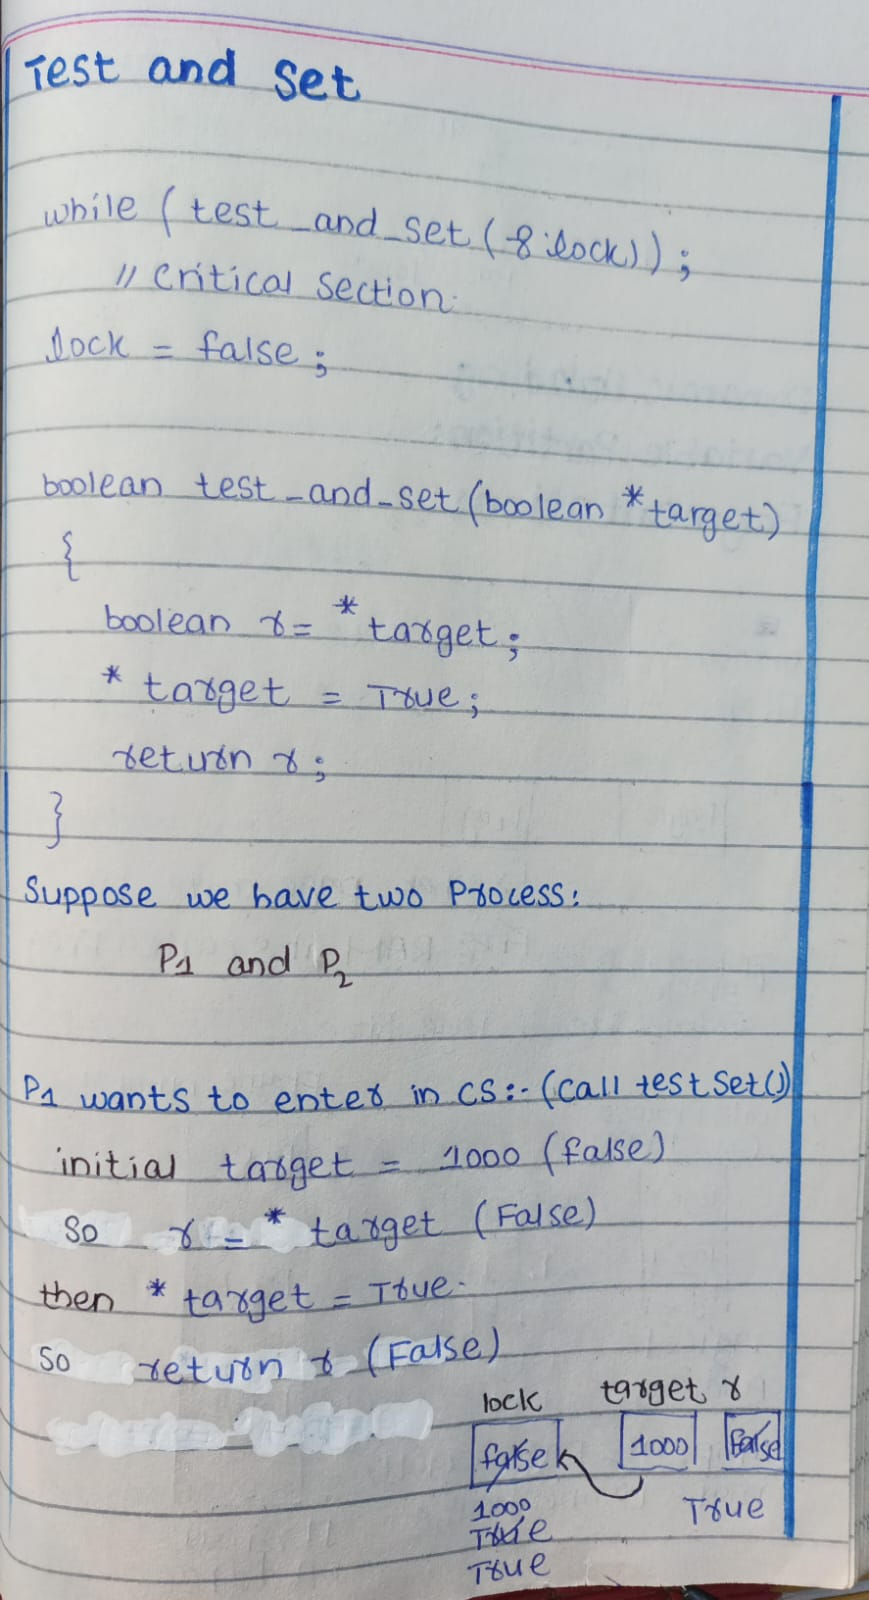 Test and Set
while ( test_and_set (&lock));
// Critical Section.
lock = false;
boolean test_and_set (boolean *target)
{
boolean r = *target;
* target = True;
return r;
}
Suppose we have two Process:
P1 and P2
P1 wants to enter in CS:- (Call testSet())
initial target = 1000 (false)
So r = * target (False)
then * target = True.
So return r (False)
lock target r
false 1000 False
1000 True
True
True